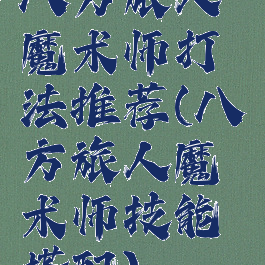 八方旅人
魔术师打
法推荐(八
方旅人魔
术师技能
搭配)